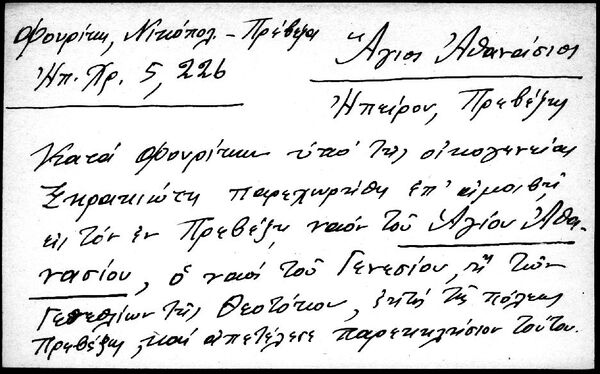 Φουρίκη, Νικόπολ. - Πρέβεζα
Ἠπ. Χρ. 5, 226
Ἅγιος Ἀθανάσιος
Ἠπείρου, Πρεβέζης
Κατά Φουρίκην ὑπό τῆς οἰκογενείας
παρεχωρήθη ἐπ' ἀμοιβῇ
εἰς τόν ἐν Πρεβέζῃ ναόν τοῦ Ἁγίου Ἀθα-
νασίου, ὁ ναός τοῦ Γενεσίου, ἤ τῶν
Γενεθλίων τῆς Θεοτόκου, ἐκτός τῆς πόλεως
Πρεβέζης, καί ἀπετέλεσε παρεκκλήσιον τούτου.